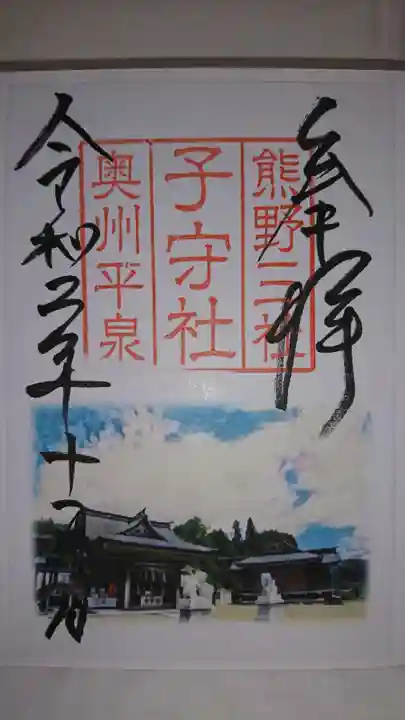 奉拝
熊野三社
子守社
奥州平泉
令和三年十一月